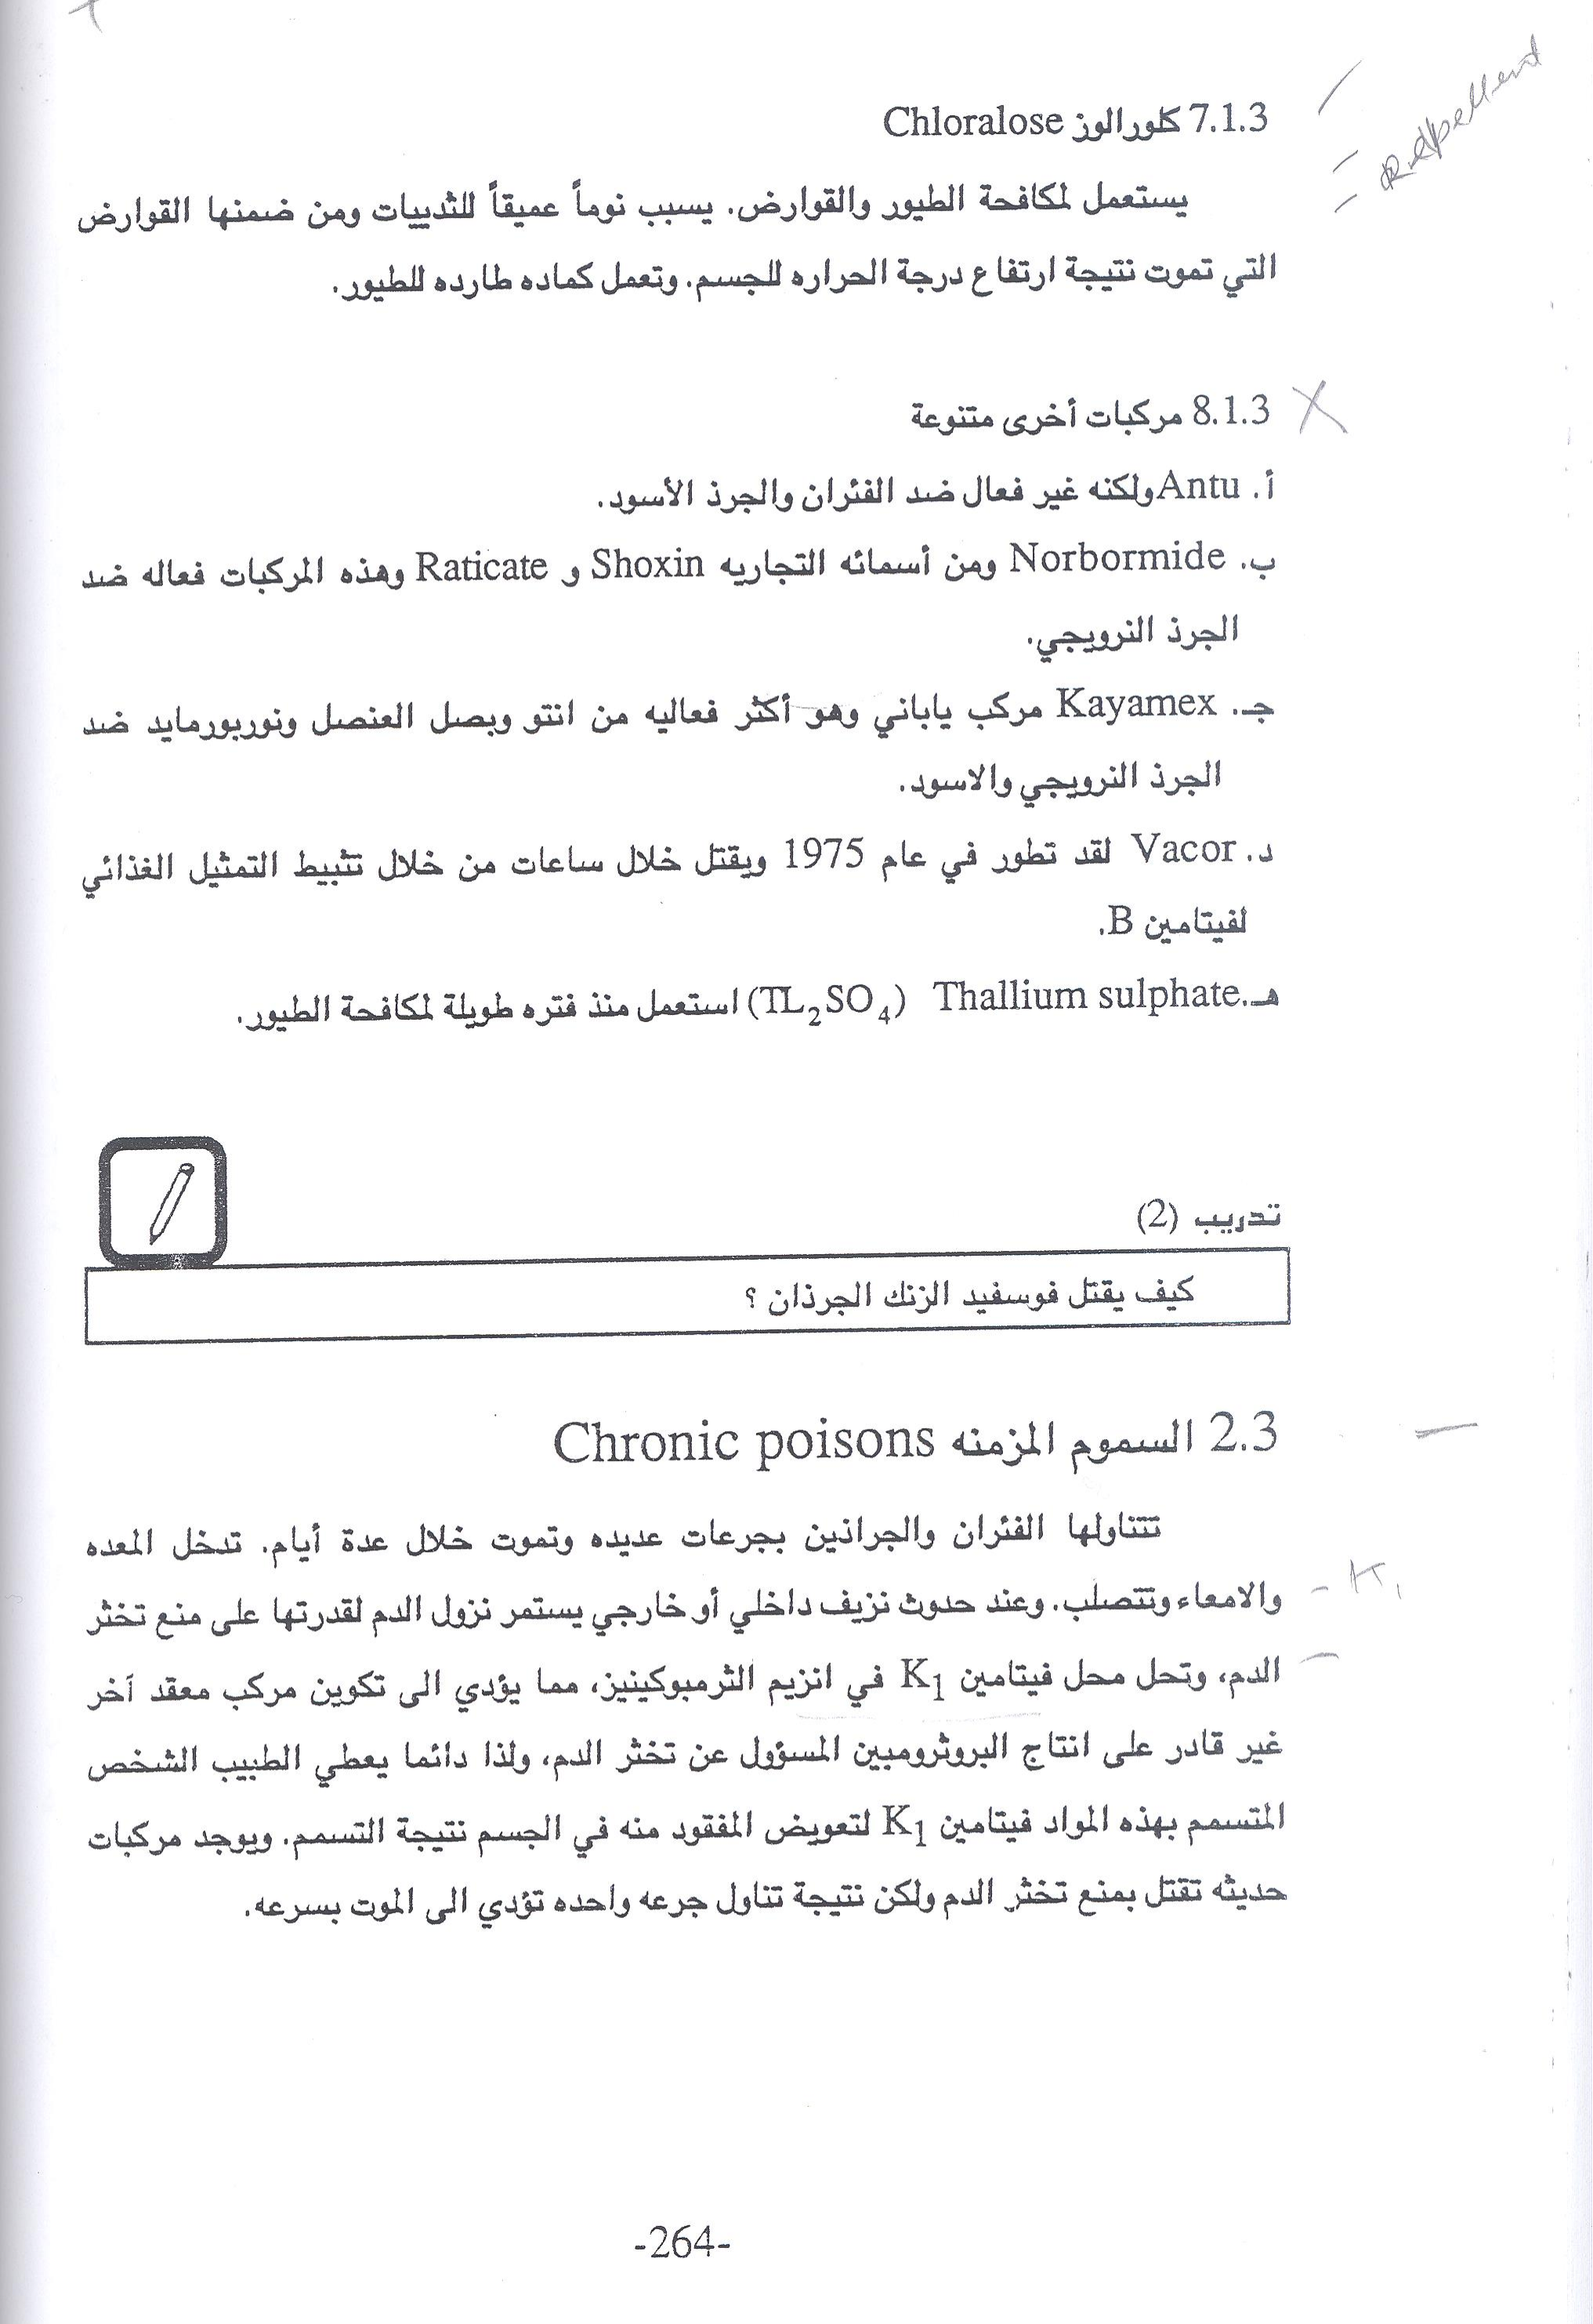 Repellent
7.1.3 كلورالوز Chloralose
يستعمل لمكافحة الطيور والقوارض. يسبب نوماً عميقاً للثدييات ومن ضمنها القوارض
التي تموت نتيجة ارتفاع درجة الحراره للجسم. وتعمل كماده طارده للطيور.
8.1.3 مركبات أخرى متنوعة
أ. Antu ولكنه غير فعال ضد الفئران والجرذ الأسود.
ب. Norbormide ومن أسمائه التجاريه Shoxin و Raticate وهذه المركبات فعاله ضد
الجرذ النرويجي.
جـ. Kayamex مركب ياباني وهو أكثر فعاليه من انتو وبصل العنصل ونوربورمايد ضد
الجرذ النرويجي والاسود.
د. Vacor لقد تطور في عام 1975 ويقتل خلال ساعات من خلال تثبيط التمثيل الغذائي
لفيتامين B.
هـ. Thallium sulphate (TL₂SO₄) استعمل منذ فتره طويلة لمكافحة الطيور.
تدريب (2)
كيف يقتل فوسفيد الزنك الجرذان ؟
2.3 السموم المزمنه Chronic poisons
تتناولها الفئران والجراذين بجرعات عديده وتموت خلال عدة أيام. تدخل المعده
والامعاء وتتصلب. وعند حدوث نزيف داخلي أو خارجي يستمر نزول الدم لقدرتها على منع تخثر
- K₁
الدم، وتحل محل فيتامين K₁ في انزيم الثرمبوكينيز، مما يؤدي الى تكوين مركب معقد آخر
غير قادر على انتاج البروثرومبين المسؤول عن تخثر الدم، ولذا دائما يعطي الطبيب الشخص
المتسمم بهذه المواد فيتامين K₁ لتعويض المفقود منه في الجسم نتيجة التسمم. ويوجد مركبات
حديثه تقتل بمنع تخثر الدم ولكن نتيجة تناول جرعه واحده تؤدي الى الموت بسرعه.
-264-